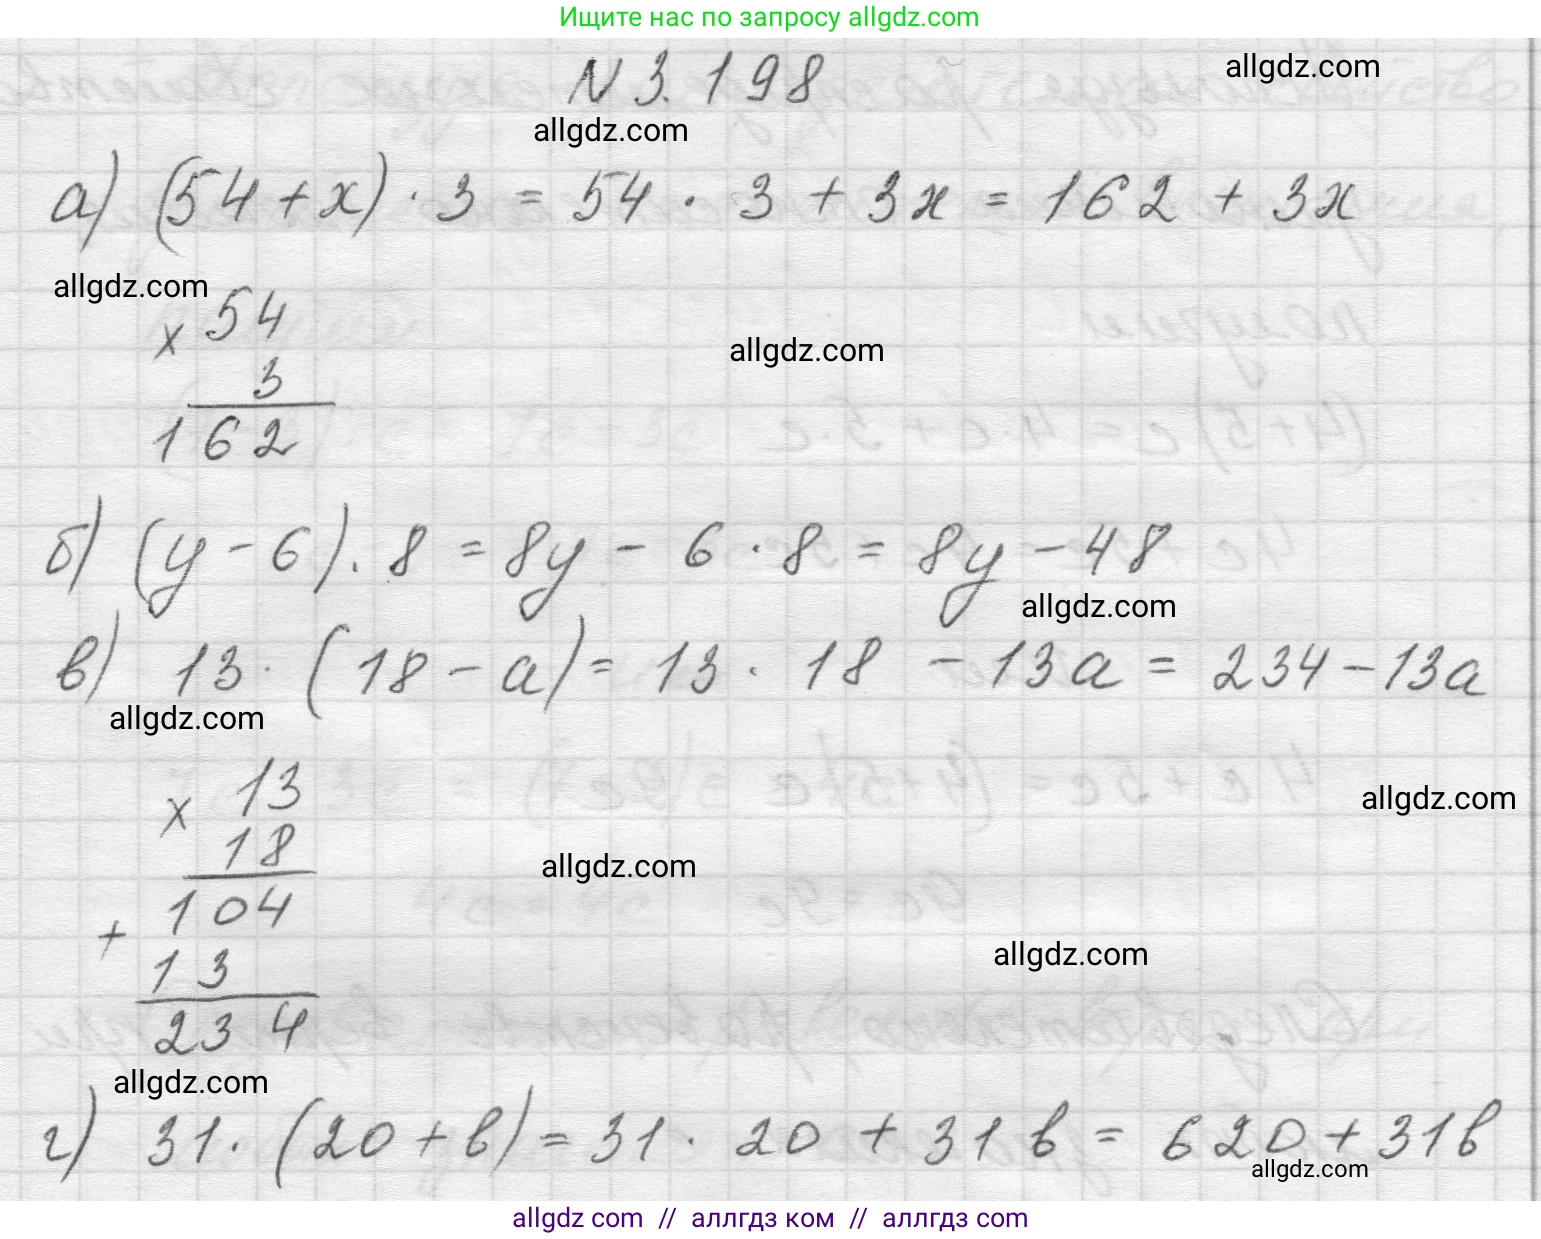 Ищите нас по запросу allgdz.com
N 3.198
allgdz.com
allgdz.com
а) (54 + x) · 3 = 54 · 3 + 3x = 162 + 3x
allgdz.com
x 54
allgdz.com
3
162
б) (y - 6) . 8 = 8y - 6 · 8 = 8y - 48
allgdz.com
в) 13 · (18 - a) = 13 · 18 - 13a = 234 - 13a
allgdz.com
x 13
allgdz.com
18
allgdz.com
104
+
13
allgdz.com
234
allgdz.com
г) 31 · (20 + b) = 31 · 20 + 31b = 620 + 31b
allgdz.com
allgdz com // аллгдз ком // аллгдз com